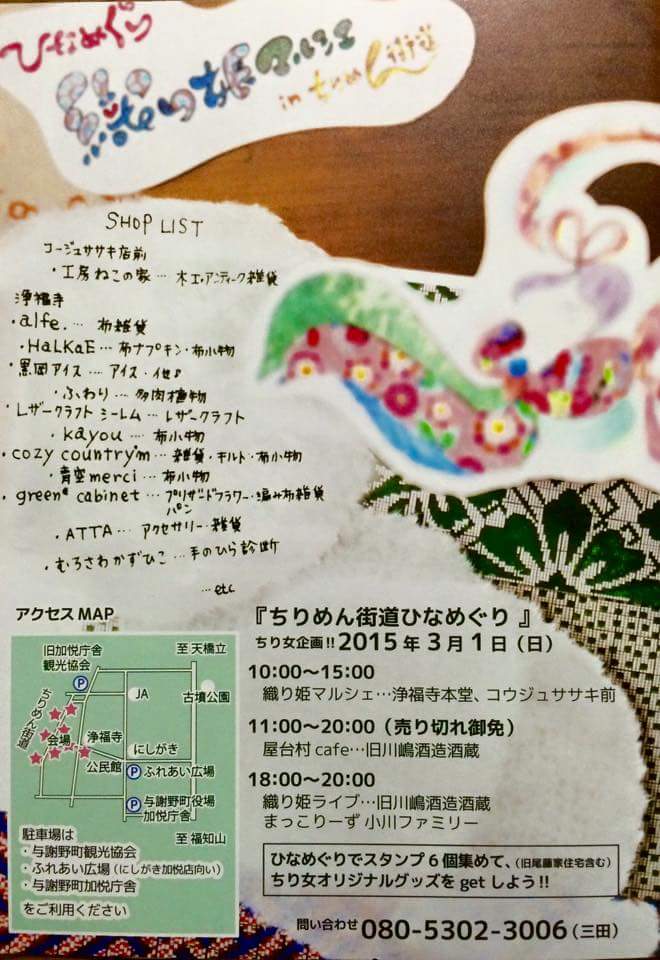 ひなめぐり
織り姫マルシェ
in ちりめん街道
SHOP LIST
コージュササキ店前
・工房ねこの家… 木工・アンティーク雑貨
浄福寺
・alfe. … 布雑貨
・HaLKaE … 布ナプキン・布小物
・黒岡アイス … アイス・他♪
・ふわり … 多肉植物
・レザークラフト シーレム … レザークラフト
・kayou … 布小物
・cozy country'm … 雑貨・キルト・布小物
・青空merci … 布小物
・green* cabinet … プリザードフラワー・編み布雑貨
パン
・ATTA … アクセサリー・雑貨
・むろさわかずひこ … 手のひら診断
…etc
アクセス MAP
旧加悦庁舎
観光協会
至 天橋立
P
JA
古墳公園
ちりめん街道
会場
浄福寺
にしがき
公民館
P ふれあい広場
P 与謝野町役場
加悦庁舎
至 福知山
駐車場は
・与謝野町観光協会
・ふれあい広場(にしがき加悦店向い)
・与謝野町加悦庁舎
をご利用ください
『ちりめん街道ひなめぐり 』
ちり女企画!! 2015 年 3 月 1 日（日）
10:00〜15:00
織り姫マルシェ…浄福寺本堂、コウジュササキ前
11:00〜20:00（売り切れ御免）
屋台村 cafe…旧川嶋酒造酒蔵
18:00〜20:00
織り姫ライブ…旧川嶋酒造酒蔵
まっこりーず 小川ファミリー
ひなめぐりでスタンプ 6 個集めて、(旧尾藤家住宅含む)
ちり女オリジナルグッズを get しよう!!
問い合わせ 080-5302-3006（三田）